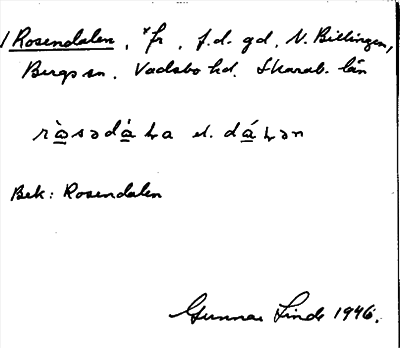 1 Rosendalen, *fr, f.d. gd, N. Billingen,
Bergs sn. Vadsbo hd. Skarab. län
el.
Bek: Rosendalen
Gunnar Linde 1946.